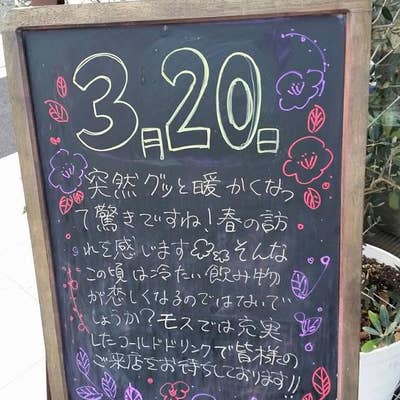 3月20日
突然グッと暖かくなっ
て驚きですね!春の訪
れを感じます そんな
この頃は冷たい飲み物
が恋しくなるのではないで
しょうか?モスでは充実
したコールドドリンクで皆様の
ご来店をお待ちしております!!